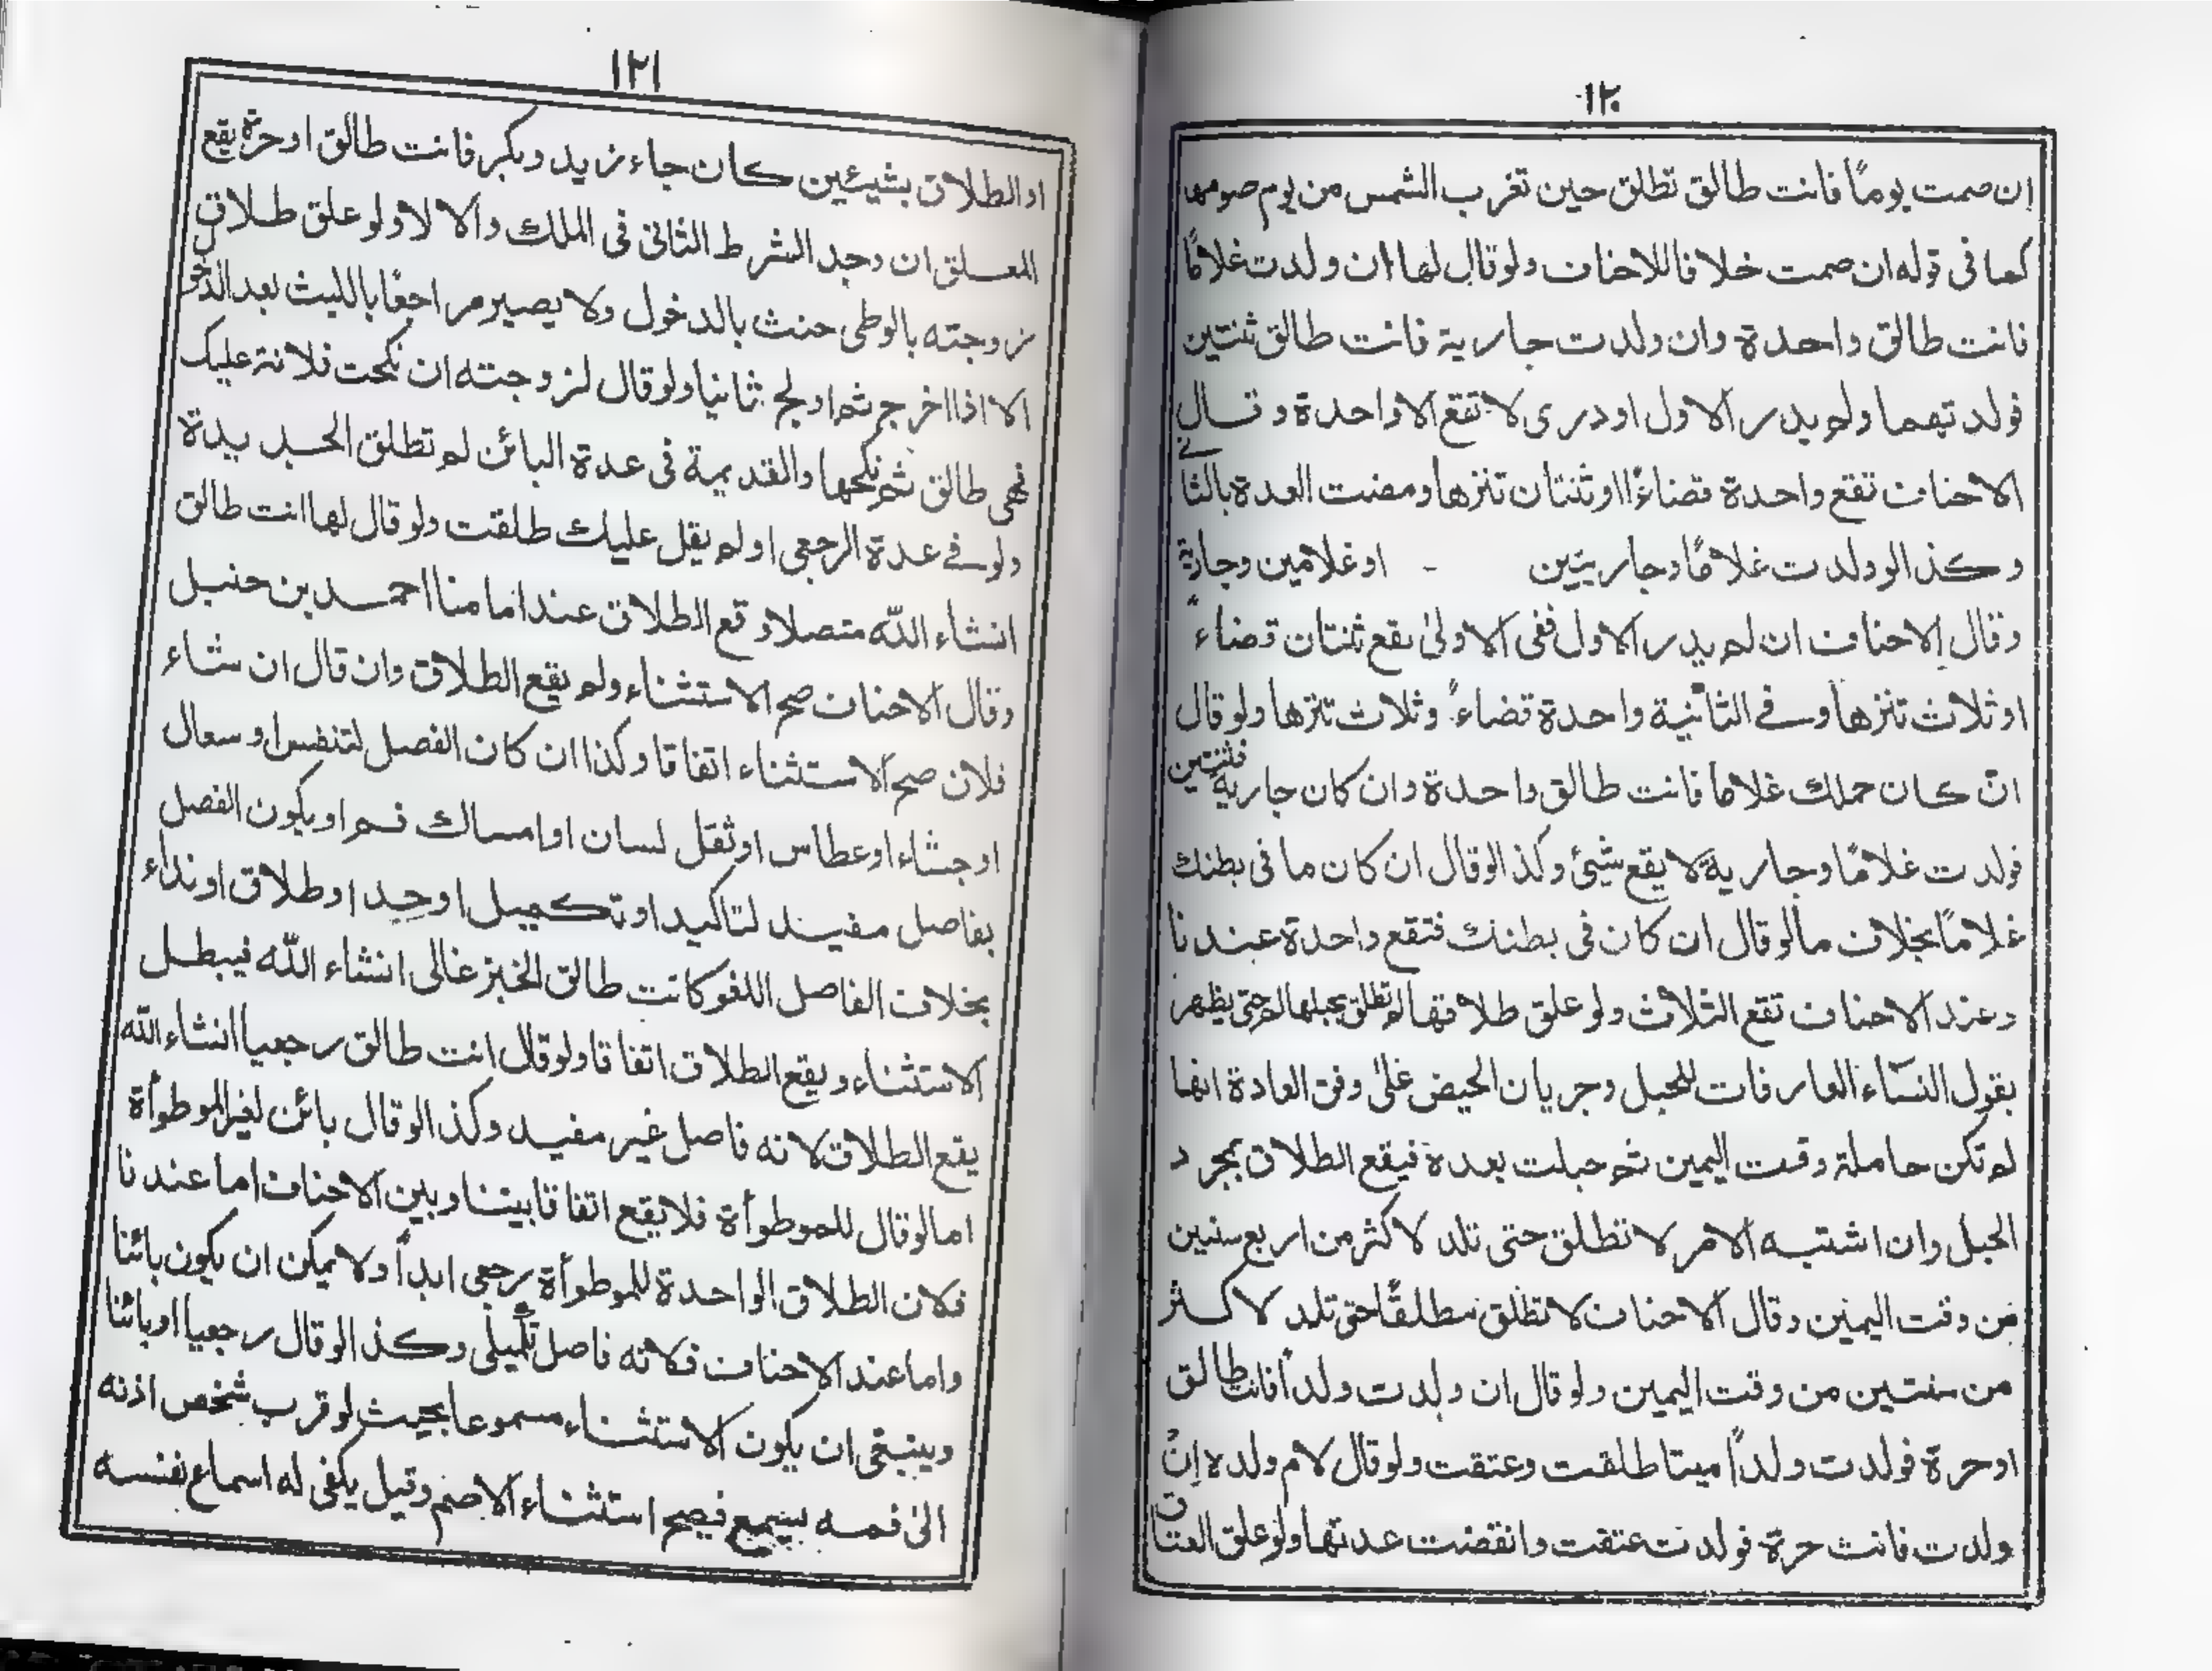 ١٢٠
إن صمت يومًا فانت طالق تطلق حين تغرب الشمس من يوم صومها
كما فى قوله ان صمت خلافا للاحناف ولو قال لها ان ولدت غلامًا
فانت طالق واحدة وان ولدت جارية فانت طالق ثنتين
فولدتهما ولم يدر الاول او درى لا تقع الا واحدة وقال
الاحناف تقع واحدة قضاءًا او ثنتان تنزها ومضت العدة بالثانى
وكذا لو ولدت غلامًا وجاريتين - او غلامين وجارية
وقال الاحناف ان لم يدر الاول ففى الاولىٰ يقع ثنتان قضاءً
او ثلاث تنزها وفے الثانية واحدة قضاءً وثلاث تنزها ولو قال
ان كان حملك غلاما فانت طالق واحدة وان كان جارية فثنتين
فولدت غلامًا وجارية لا يقع شيئ وكذا لو قال ان كان ما فى بطنك
غلامًا بخلاف ما لو قال ان كان فى بطنك فتقع واحدة عندنا
وعند الاحناف تقع الثلاث ولو علق طلاقها لو تطلق بحبلها لم حتى يظهر
بقول النساء العارفات للحبل وجريان الحيض علىٰ وفق العادة انها
لم تكن حاملة وقت اليمين ثم حبلت بعده فيقع الطلاق بمجرد
الحبل وان اشتبه الامر لا تطلق حتى تلد لاكثر من اربع سنين
من وقت اليمين وقال الاحناف لا تطلق مطلقًا حتى تلد لاكثر
من سنتين من وقت اليمين ولو قال ان ولدت ولداً فانت طالق
او حرة فولدت ولداً ميتا طلقت وعتقت ولو قال لام ولده إن
ولدت فانت حرة فولدت عتقت وانقضت عدتها ولو علق العتاق
١٢١
او الطلاق بشيئين كان جاء زيد وبكر فانت طالق او حرة يقع
المعلق ان وجد الشرط الثانى فى الملك والا لا ولو علق طلاق
زوجته بالوطى حنث بالدخول ولا يصير مراجعًا باللبث بعد الدخول
الا اذا اخرج ثم اولج ثانيا ولو قال لزوجته ان نكحت فلانة عليك
فهى طالق ثم نكحها والقديمة فى عدة البائن لم تطلق الجديدة
ولو فے عدة الرجعى او لم يقل عليك طلقت ولو قال لها انت طالق
انشاء اللّٰه متصلا وقع الطلاق عند امامنا احمد بن حنبل
وقال الاحناف صح الاستثناء ولم يقع الطلاق وان قال ان شاء
فلان صح الاستثناء اتفاقا وكذا ان كان الفصل لتنفس او سعال
او جشاء او عطاس او ثقل لسان او امساك فم او يكون الفصل
بفاصل مفيد لتاكيد او تكميل او حد او طلاق او نداء
بخلاف الفاصل اللغو كانت طالق الخبز غالى انشاء اللّٰه فيبطل
الاستثناء ويقع الطلاق اتفاقا ولو قال انت طالق رجعيا انشاء اللّٰه
يقع الطلاق لانه فاصل غير مفيد وكذا لو قال بائن لغير الموطوأة
اما لو قال للموطوأة فلا يقع اتفاقا بيننا وبين الاحناف اما عندنا
فلان الطلاق الواحدة للموطوأة رجعى ابداً ولا يمكن ان يكون بائنا
واما عند الاحناف فلانه فاصل تكميلى وكذا لو قال رجعيا او بائنا
وينبغى ان يكون الاستثناء مسموعا بحيث لو قرب شخص اذنه
الىٰ فمه يسمع فيصح استثناء الاصم وقيل يكفى له اسماع نفسه